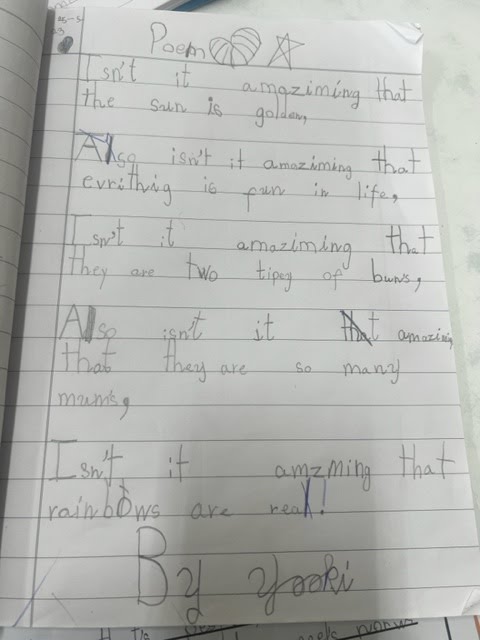 Poem
Isn't it amaziming that
the sun is golden,
Also isn't it amaziming that
evrithing is fun in life,
Isn't it amaziming that
they are two tipey of buns,
Also isn't it that amazining
that they are so many
mums,
Isn't it amzming that
rainbows are real!
By Yooki